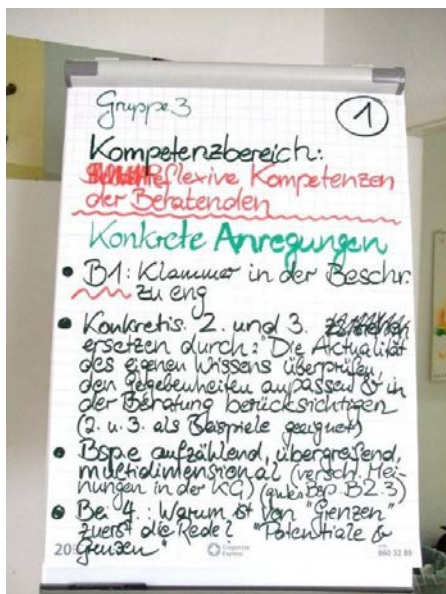 Gruppe 3
1
Kompetenzbereich:
reflexive Kompetenzen
der Beratenden
Konkrete Anregungen
• B1: Klammer in der Beschr.
zu eng
• Konkretis. 2. und 3.
ersetzen durch: "Die Aktualität
des eigenen Wissens überprüfen,
den Gegebenheiten anpassen & in
der Beratung berücksichtigen
(2. u. 3. als Beispiele geeignet)
• Bsp.e aufzählend, übergreifend,
multidimensional (versch. Mei-
nungen in der KG) (gutes Bsp. B2.3)
• Bei 4.: Warum ist von "Grenzen"
zuerst die Rede? "Potentiale &
Grenzen"
Corporate
Express
860 32 89